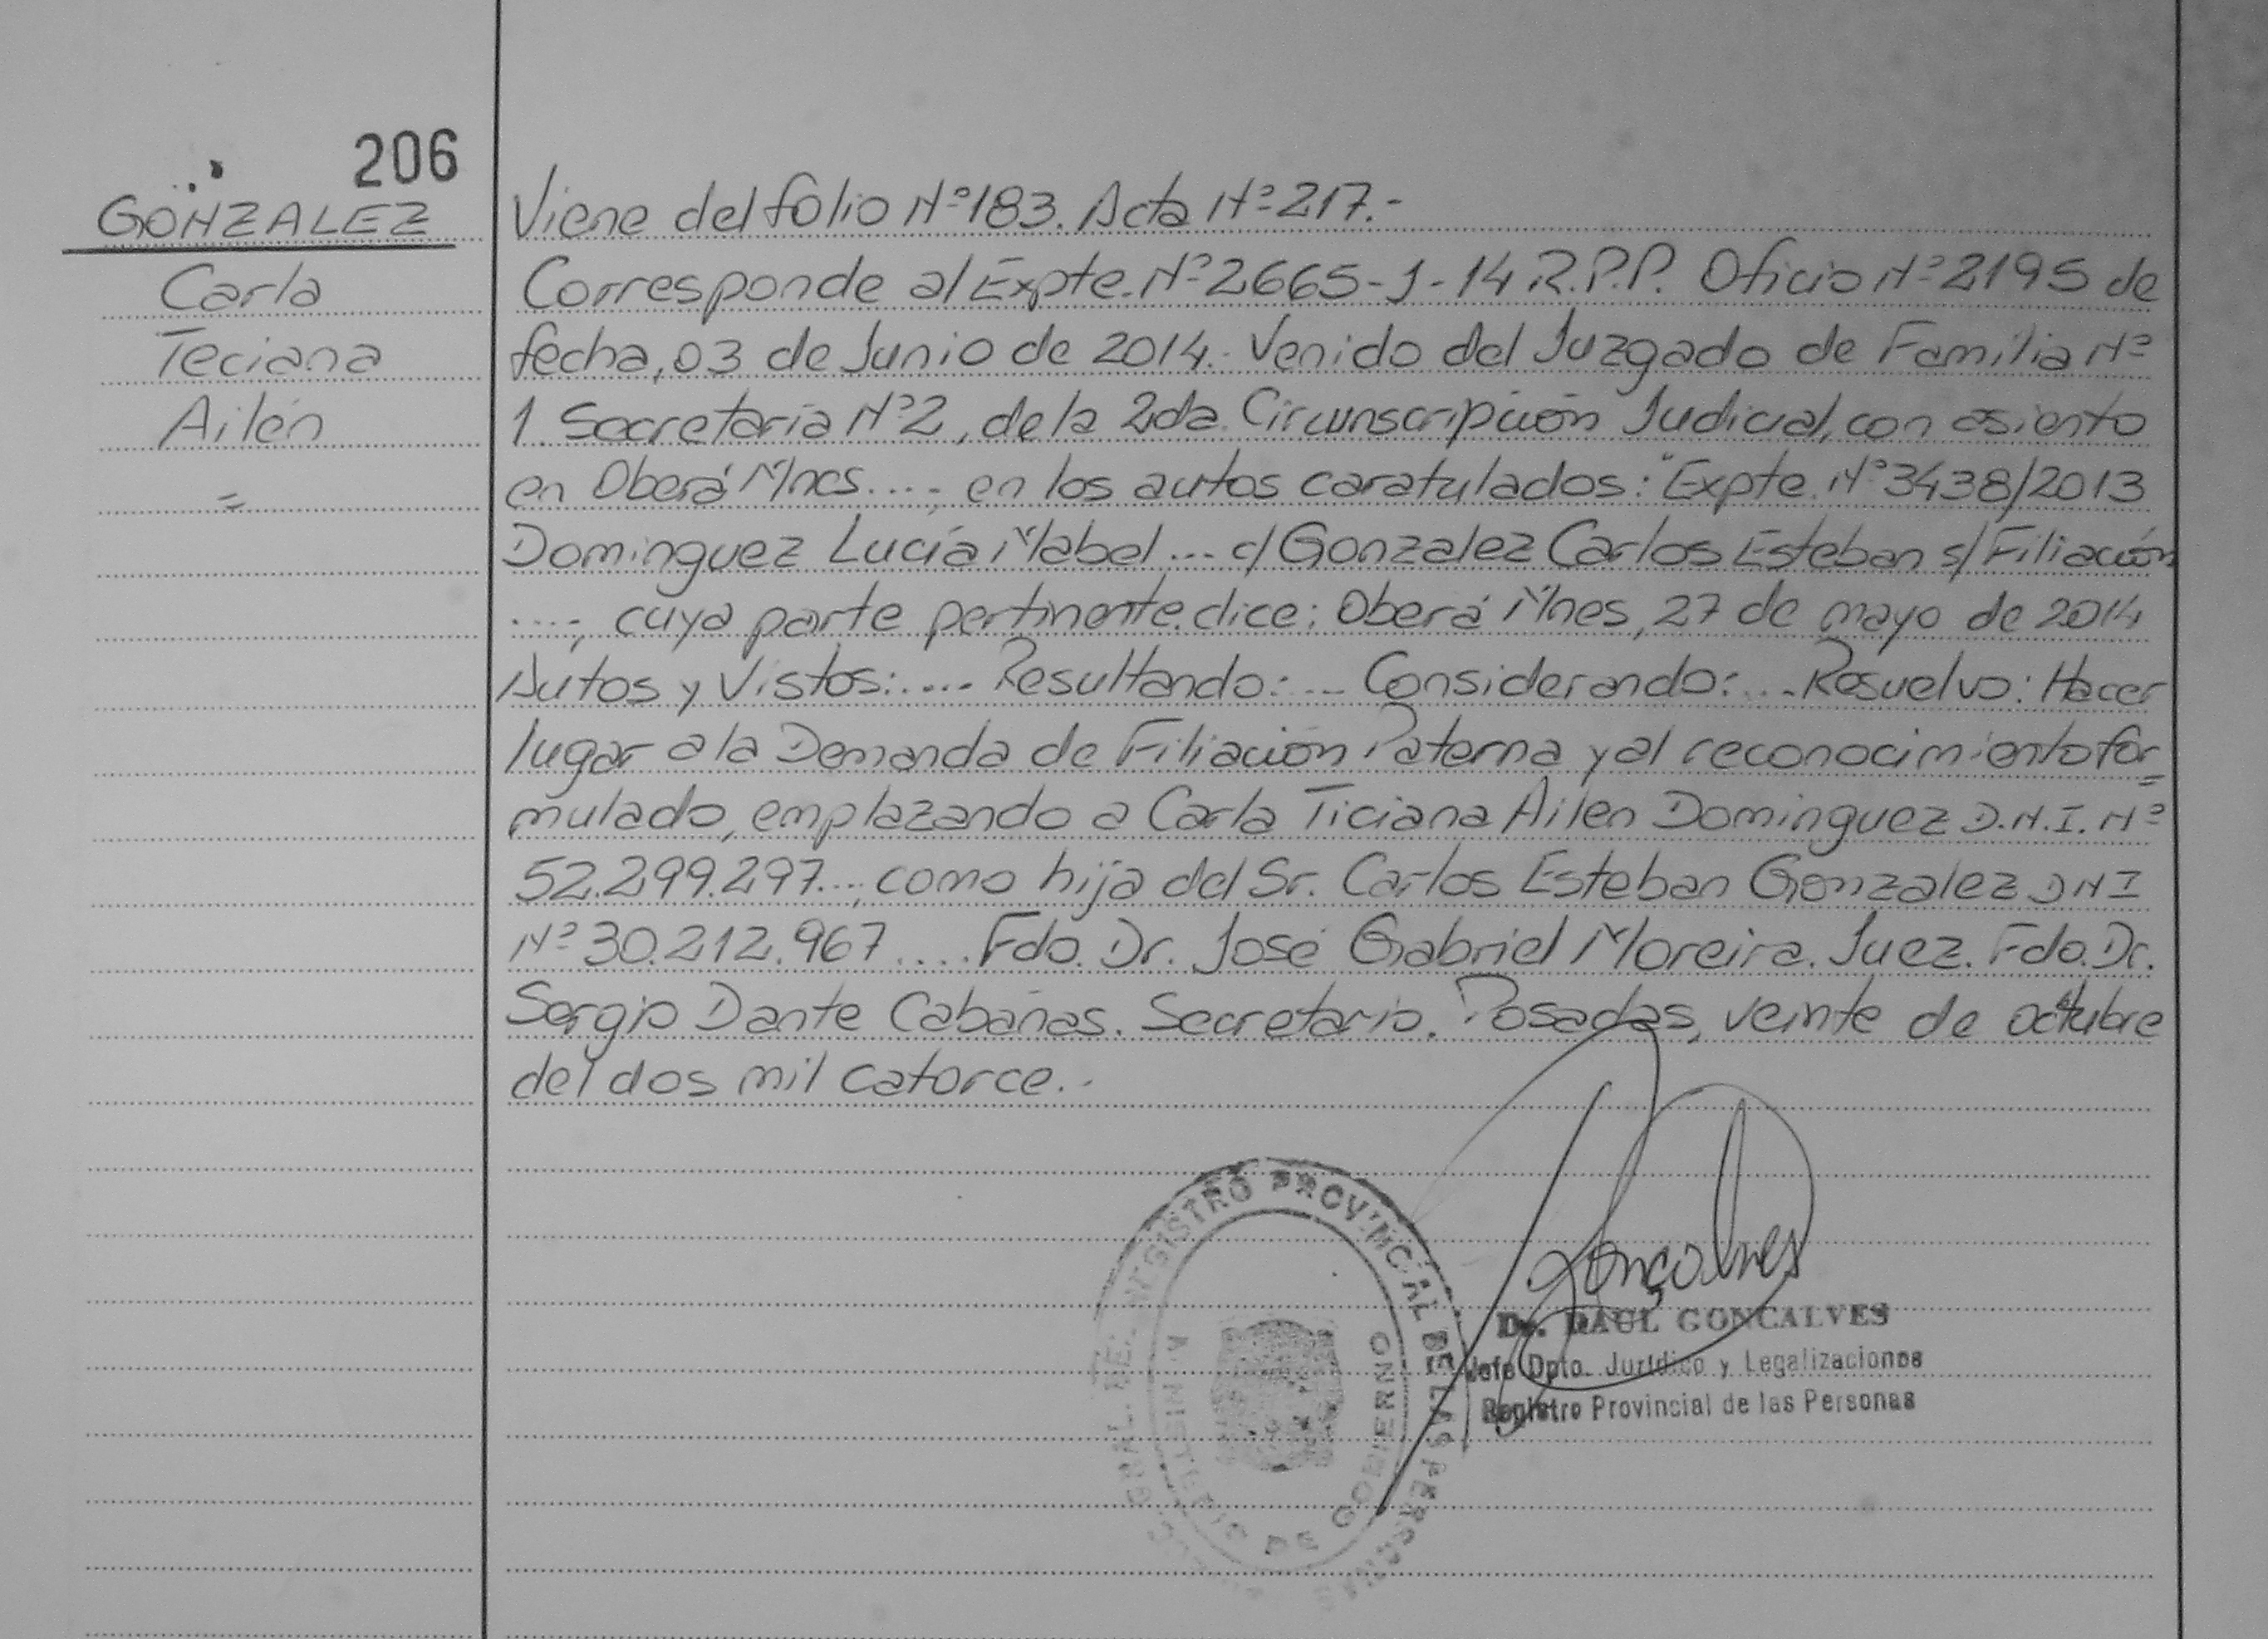 206
GONZALEZ
Carla
Teciana
Ailén
=
Viene del folio Nº 183. Acta Nº 217.-
Corresponde al Expte. Nº 2665-J-14 R.P.P. Oficio Nº 2195 de
fecha, 03 de Junio de 2014.- Venido del Juzgado de Familia Nº
1. Secretaría Nº 2, de la 2da. Circunscripción Judicial, con asiento
en Oberá Mnes....; en los autos caratulados: "Expte. Nº 3438/2013
Dominguez Lucía Mabel... c/ Gonzalez Carlos Esteban s/ Filiación
....; cuya parte pertinente dice: Oberá Mnes, 27 de mayo de 2014
Autos y Vistos:.... Resultando:... Considerando:... Resuelvo: Hacer
lugar a la Demanda de Filiación Paterna y al reconocimiento for=
mulado, emplazando a Carla Ticiana Ailen Dominguez D.N.I. Nº
52.299.297...; como hija del Sr. Carlos Esteban Gonzalez DNI
Nº 30.212.967 .... Fdo. Dr. José Gabriel Moreira. Juez. Fdo. Dr.
Sergio Dante Cabañas. Secretario. Posadas, veinte de octubre
del dos mil catorce.-
REGISTRO PROVINCIAL DE LAS PERSONAS
MINISTERIO DE GOBIERNO
Gonçalves
Dr. RAUL GONCALVES
Jefe Dpto. Jurídico y Legalizaciones
Registro Provincial de las Personas